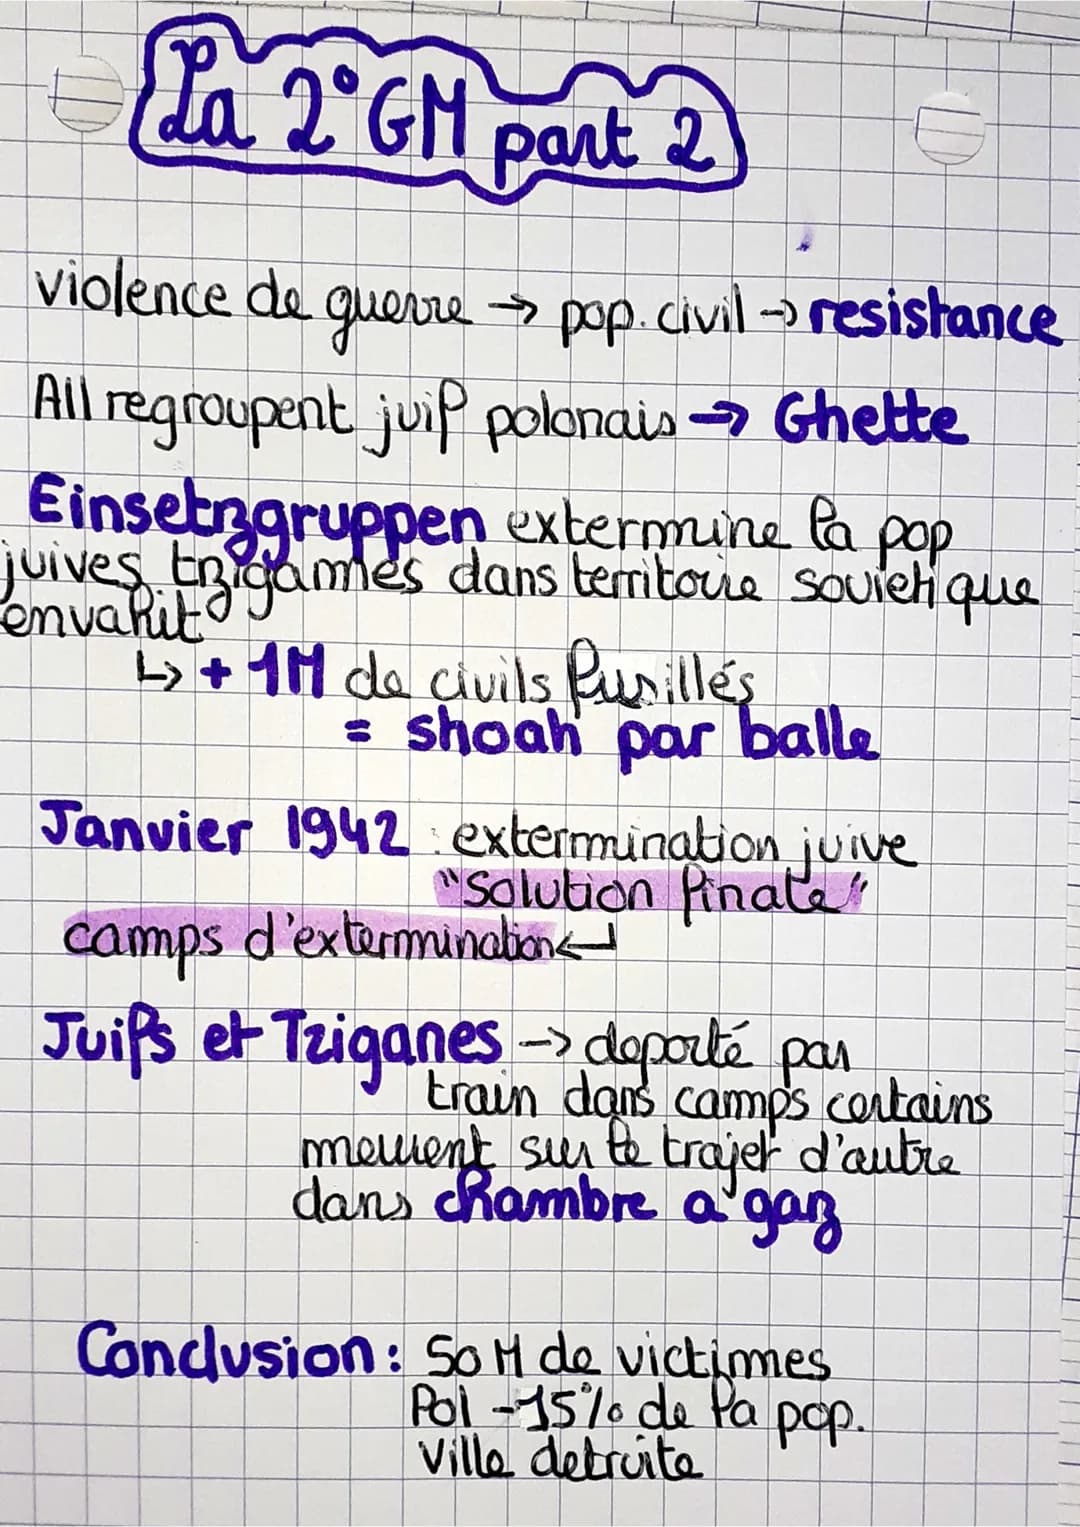 La 2° GM part 2
violence de guerre → pop. civil → resistance
All regroupent juif polonais → Ghette
Einsetzgruppen extermine la pop
juives tzigannes dans territoire sovietique
envahit
↳ + 1M de civils fusillés
= shoah par balle
Janvier 1942 : extermination juive
"Solution finale"
camps d'extermination ↵
Juifs et Tziganes -> deporté par
train dans camps certains
meurent sur le trajet d'autre
dans chambre a gaz
Conclusion : 50 M de victimes
Pol -15% de la pop.
Ville detruite